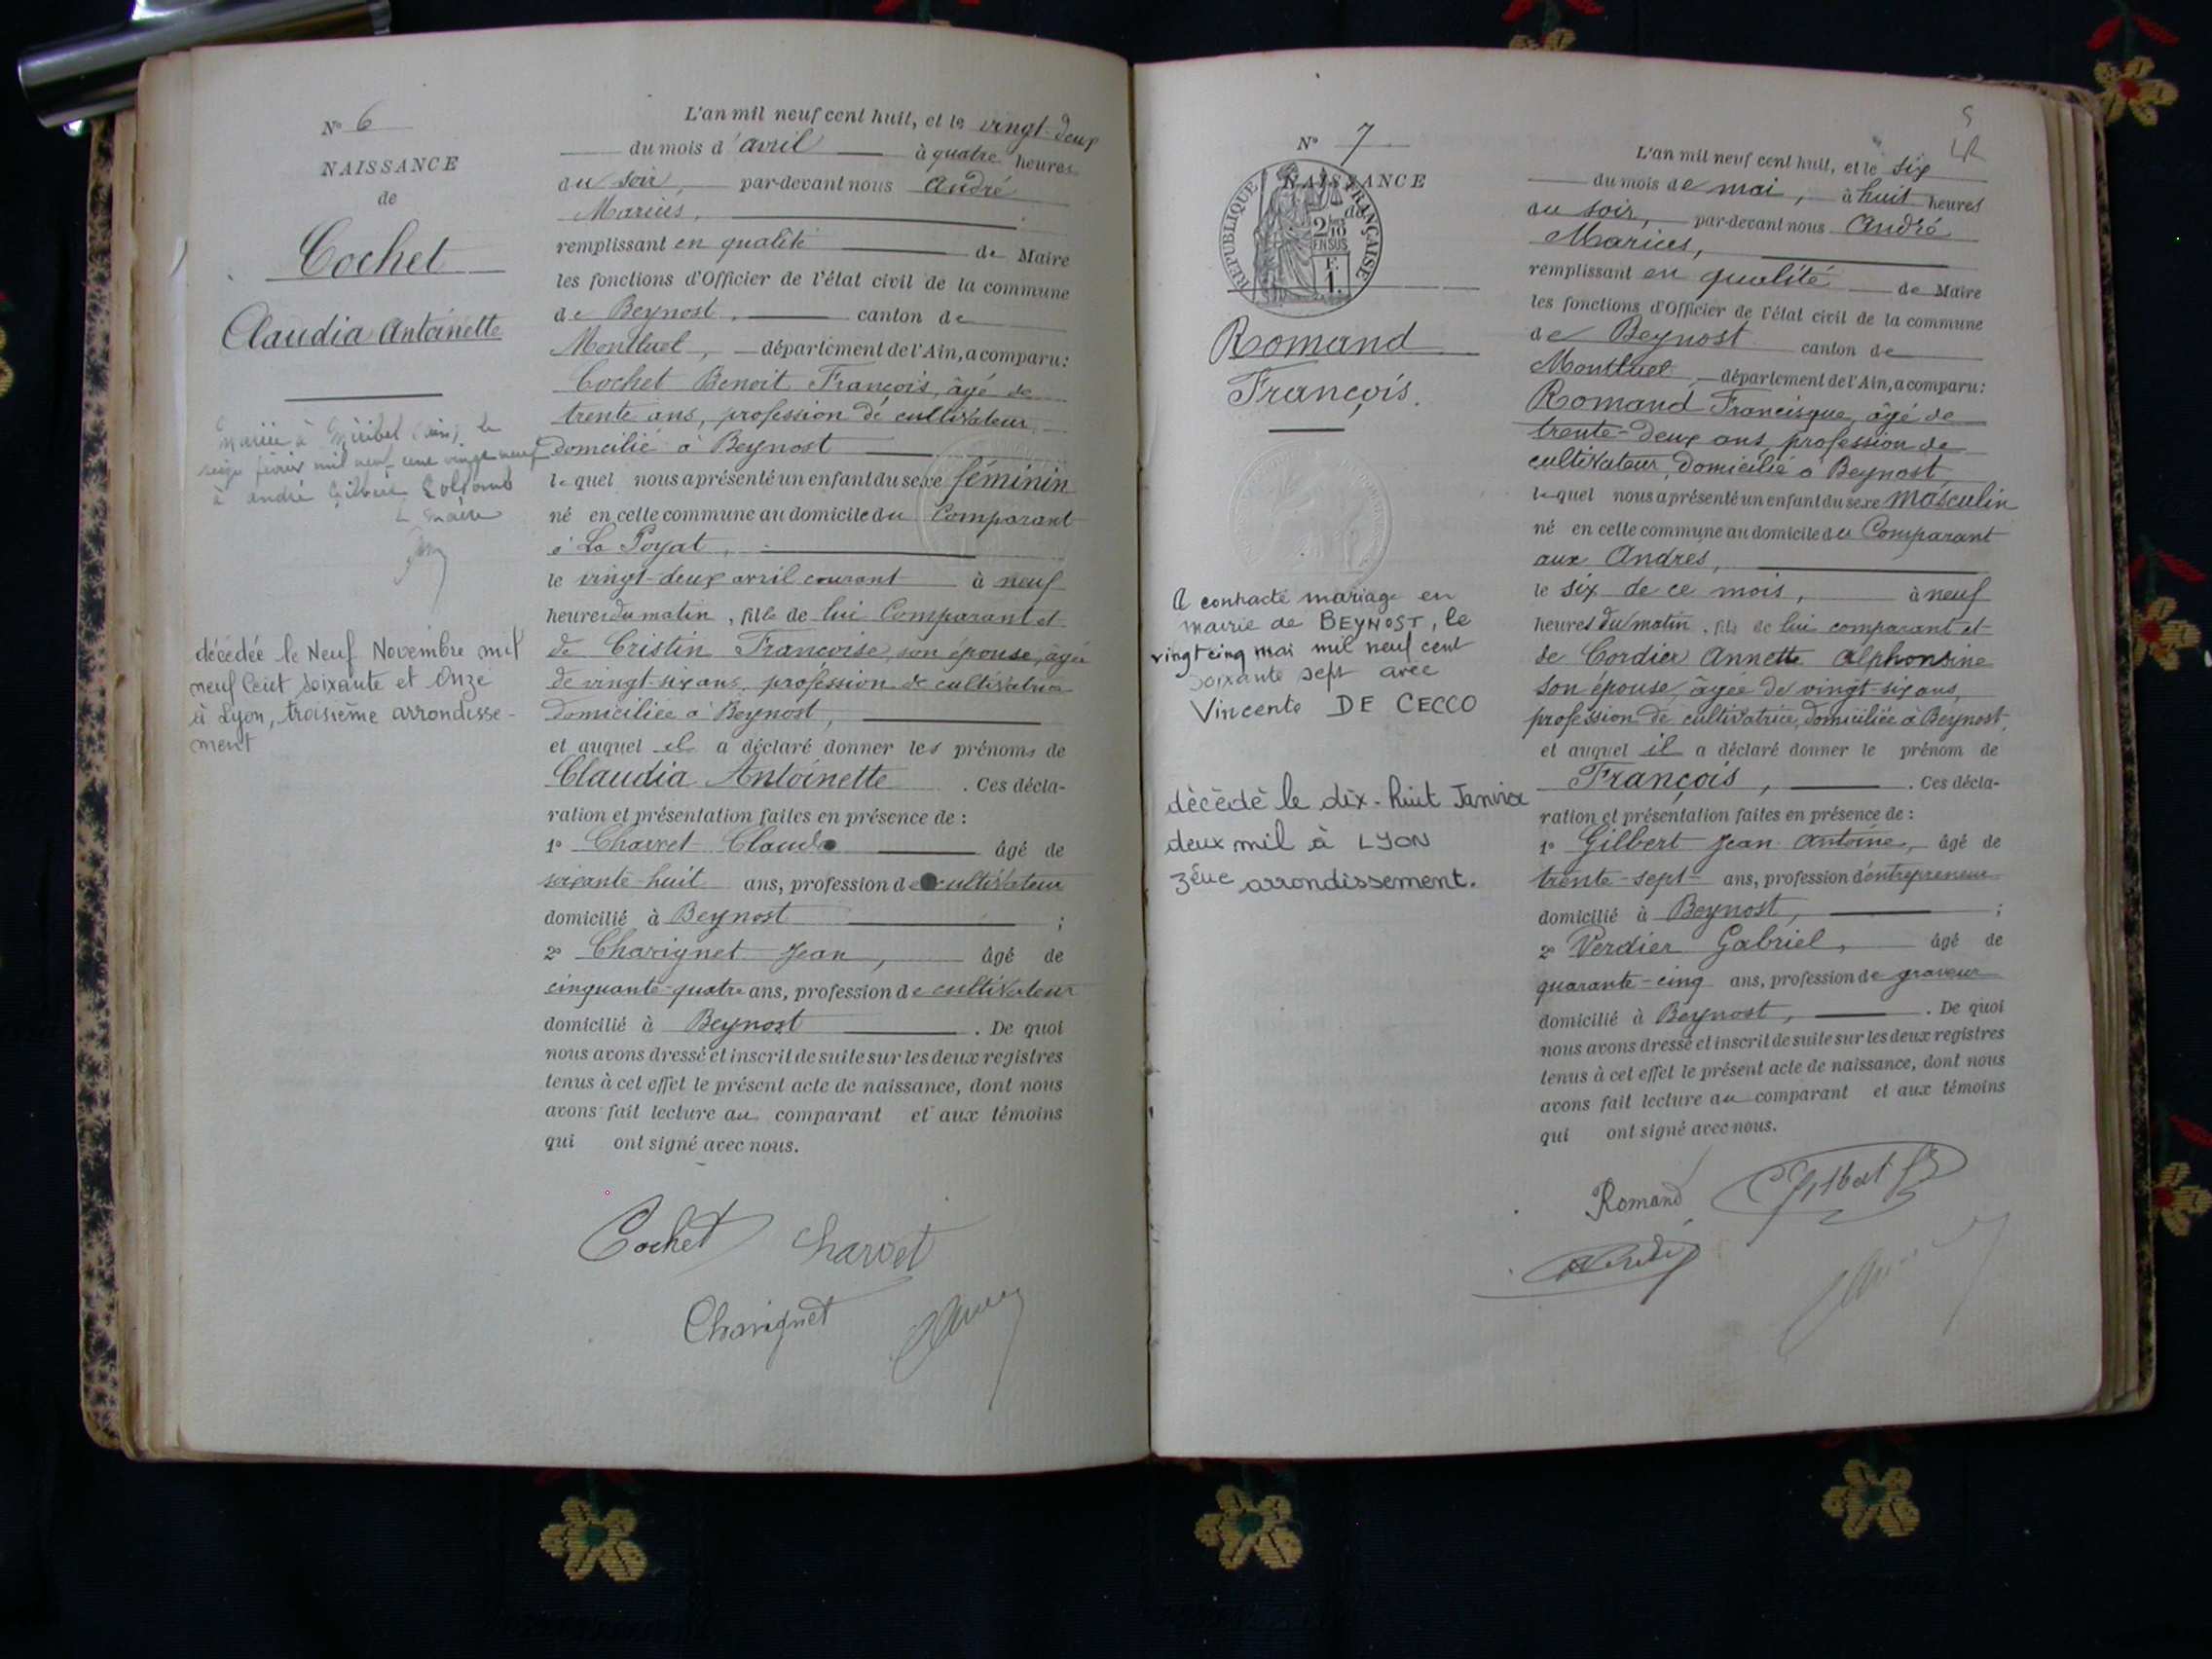 N° 6
NAISSANCE
de
Cochet
Claudia Antoinette
Mariée à Miribel (Ain), le
seize février mil neuf cent vingt neuf
à André Gilbert
Le Maire
décédée le Neuf Novembre mil
neuf Cent Soixante et Onze
à Lyon, troisième arrondisse-
ment
L'an mil neuf cent huit, et le vingt-deux
du mois d'avril à quatre heures
du soir, par-devant nous André
Marius,
remplissant en qualité de Maire
les fonctions d'Officier de l'état civil de la commune
de Beynost, canton de
Montluel, département de l'Ain, a comparu:
Cochet Benoit François, âgé de
trente ans, profession de cultivateur
domicilié à Beynost
lequel nous a présenté un enfant du sexe féminin
né en cette commune au domicile du Comparant
à La Poyat,
le vingt-deux avril courant à neuf
heures du matin, fille de lui Comparant et
de Cristin Françoise, son épouse, âgée
de vingt-six ans, profession de cultivatrice
domiciliée à Beynost,
et auquel il a déclaré donner les prénoms de
Claudia Antoinette. Ces décla-
ration et présentation faites en présence de :
1° Charvet Claude âgé de
soixante-huit ans, profession de cultivateur
domicilié à Beynost ;
2° Charignet Jean, âgé de
cinquante-quatre ans, profession de cultivateur
domicilié à Beynost. De quoi
nous avons dressé et inscrit de suite sur les deux registres
tenus à cet effet le présent acte de naissance, dont nous
avons fait lecture au comparant et aux témoins
qui ont signé avec nous.
Cochet Charvet
Charignet
5
N° 7
NAISSANCE
de
REPUBLIQUE FRANÇAISE
2/10
EN SUS
F.
1.
Romand
François.
A contracté mariage en
mairie de BEYNOST, le
vingt cinq mai mil neuf cent
soixante sept avec
Vincente DE CECCO
décédé le dix-huit Janvier
deux mil à LYON
3ème arrondissement.
L'an mil neuf cent huit, et le six
du mois de mai, à huit heures
du soir, par-devant nous André
Marius,
remplissant en qualité de Maire
les fonctions d'Officier de l'état civil de la commune
de Beynost canton de
Montluel, département de l'Ain, a comparu:
Romand Francisque, âgé de
trente-deux ans, profession de
cultivateur, domicilié à Beynost,
lequel nous a présenté un enfant du sexe masculin
né en cette commune au domicile du Comparant
aux Andres,
le six de ce mois, à neuf
heures du matin, fils de lui comparant et
de Cordier Annette Alphonsine
son épouse, âgée de vingt-six ans,
profession de cultivatrice, domiciliée à Beynost,
et auquel il a déclaré donner le prénom de
François,. Ces décla-
ration et présentation faites en présence de :
1° Gilbert Jean Antoine, âgé de
trente-sept ans, profession d'entrepreneur
domicilié à Beynost, ;
2° Verdier Gabriel, âgé de
quarante-cinq ans, profession de graveur
domicilié à Beynost,. De quoi
nous avons dressé et inscrit de suite sur les deux registres
tenus à cet effet le présent acte de naissance, dont nous
avons fait lecture au comparant et aux témoins
qui ont signé avec nous.
Romand Gilbert